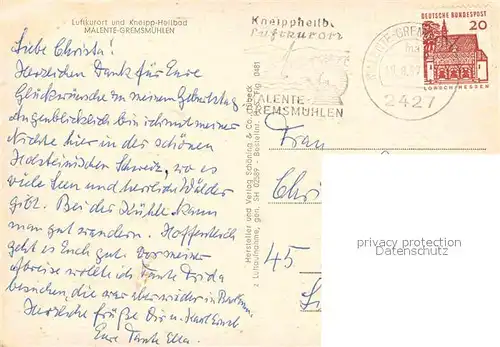 Luftkurort und Kneipp-Heilbad
MALENTE-GREMSMÜHLEN
Liebe Christa!
Herzlichen Dank für Eure
Glückwünsche zu meinem Geburtstag.
Augenblicklich bin ich mit meiner
Nichte hier in der schönen
Holsteinischen Schweiz, wo es
viele Seen und herrliche Wälder
gibt. Bei der Kühle kann
man gut wandern. Hoffentlich
geht es Euch gut. Vor meiner
Abreise wollte ich Tante Frida
besuchen, die war aber wieder in
Herzliche Grüße Dir u. Karl Ernst
Eure Tante Ella.
Hersteller und Verlag Schöning & Co., Lübeck
Luftaufnahme, gen. SH 02589 - Bestellnr.
0481
Kneippheilb
Luftkurort
MALENTE-
GREMSMÜHLEN
MALENTE-GREMS
2427
DEUTSCHE BUNDESPOST
20
LORSCH/HESSEN
Frau
Chri
45
privacy protection
Datenschutz